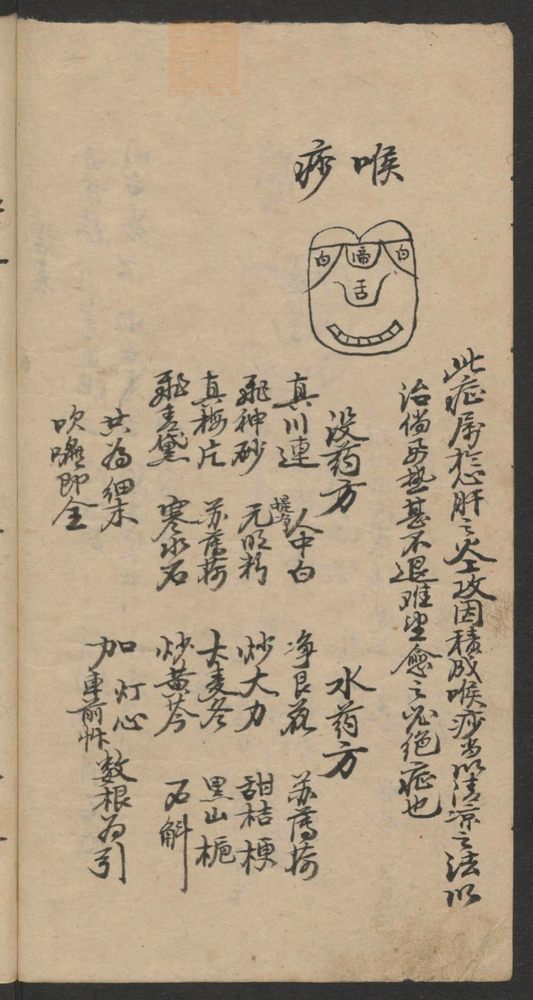 喉痧
白 啼 白
舌
此症属於心肝之火上攻因積成喉痧当以清凉之法以
治倘再熱甚不退难望愈之兇絕症也
没药方
真川連 人中白
飛神砂 元明粉
真梅片 苏薄荷
飛青黛 寒水石
共为细末
吹喉即全
水药方
净艮花 苏薄荷
炒大力 甜桔梗
大麦冬 黑山栀
炒黄芩 石斛
加灯心
車前艸 数根为引